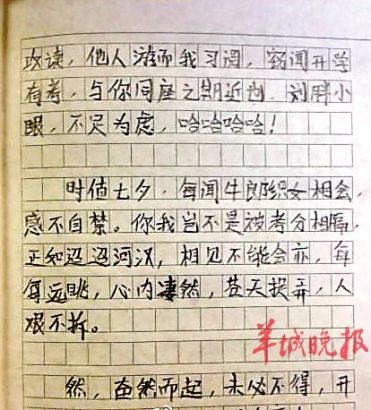 攻读，他人游而我习阅，窃闻开学
有考，与你同座之期近到，刘胖小
眼，不足为虑，哈哈哈哈！
时值七夕，每闻牛郎织女相会，
感不自禁。你我岂不是被考分相隔，
正如迢迢河汉，相见不能会亦，每
每远眺，心内凄然，苍天捉弄，人
艰不拆。
羊城晚报
然，奋然而起，未必不得，开